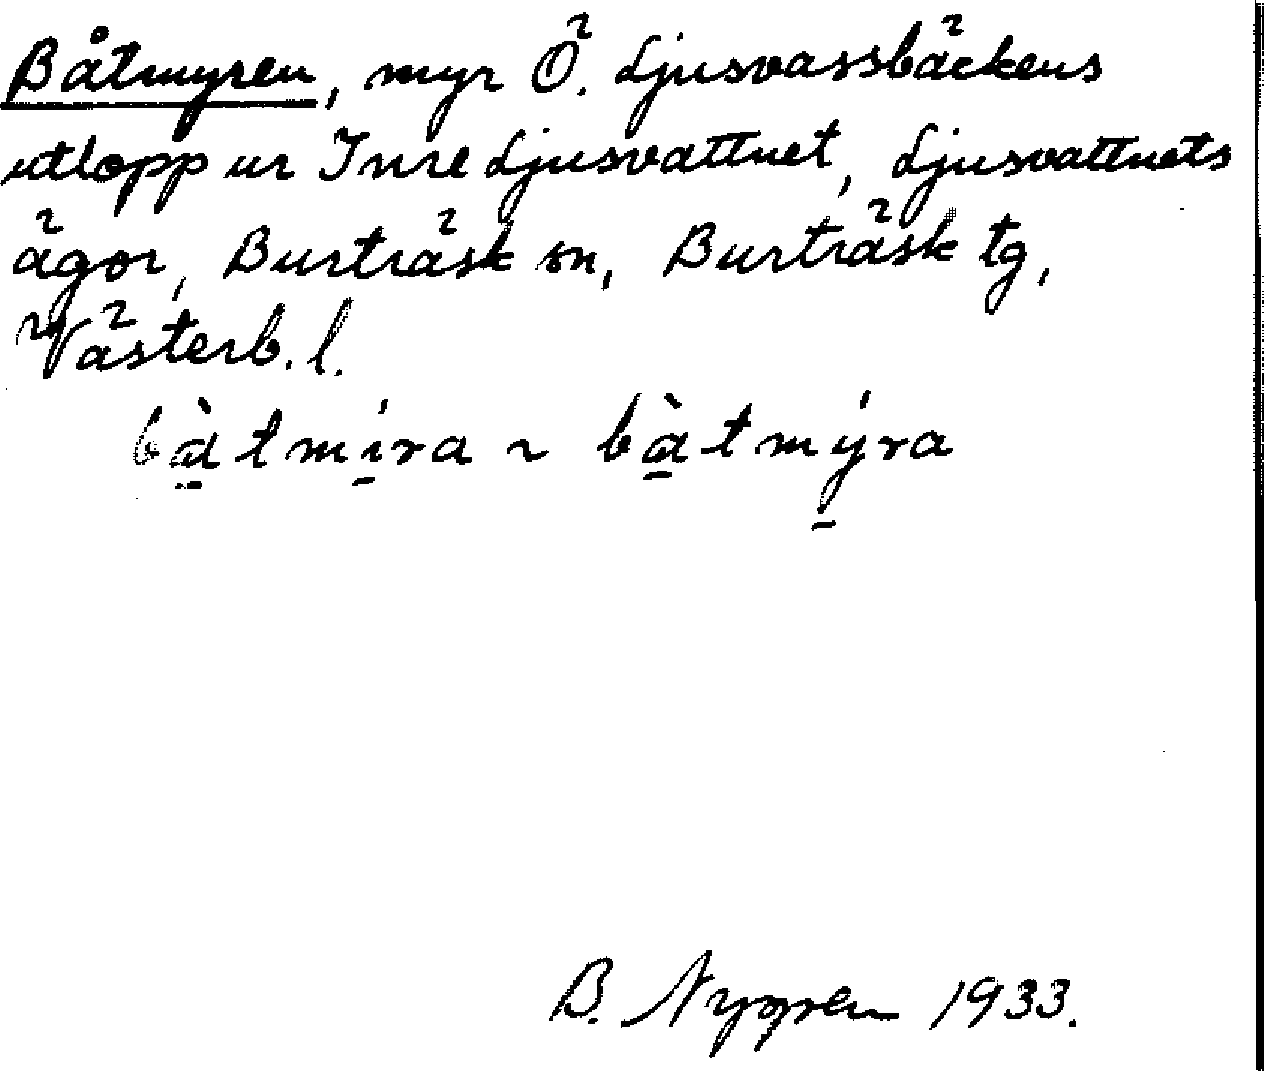 Båtmyren, myr Ö. Ljusvassbäckens
utlopp ur Inre Ljusvattnet, Ljusvattnets
ägor, Burträsk sn, Burträsk tg,
Västerb. l.
bà̱tmí̱ra ~ bà̱tmý̱ra
B. Nygren 1933.